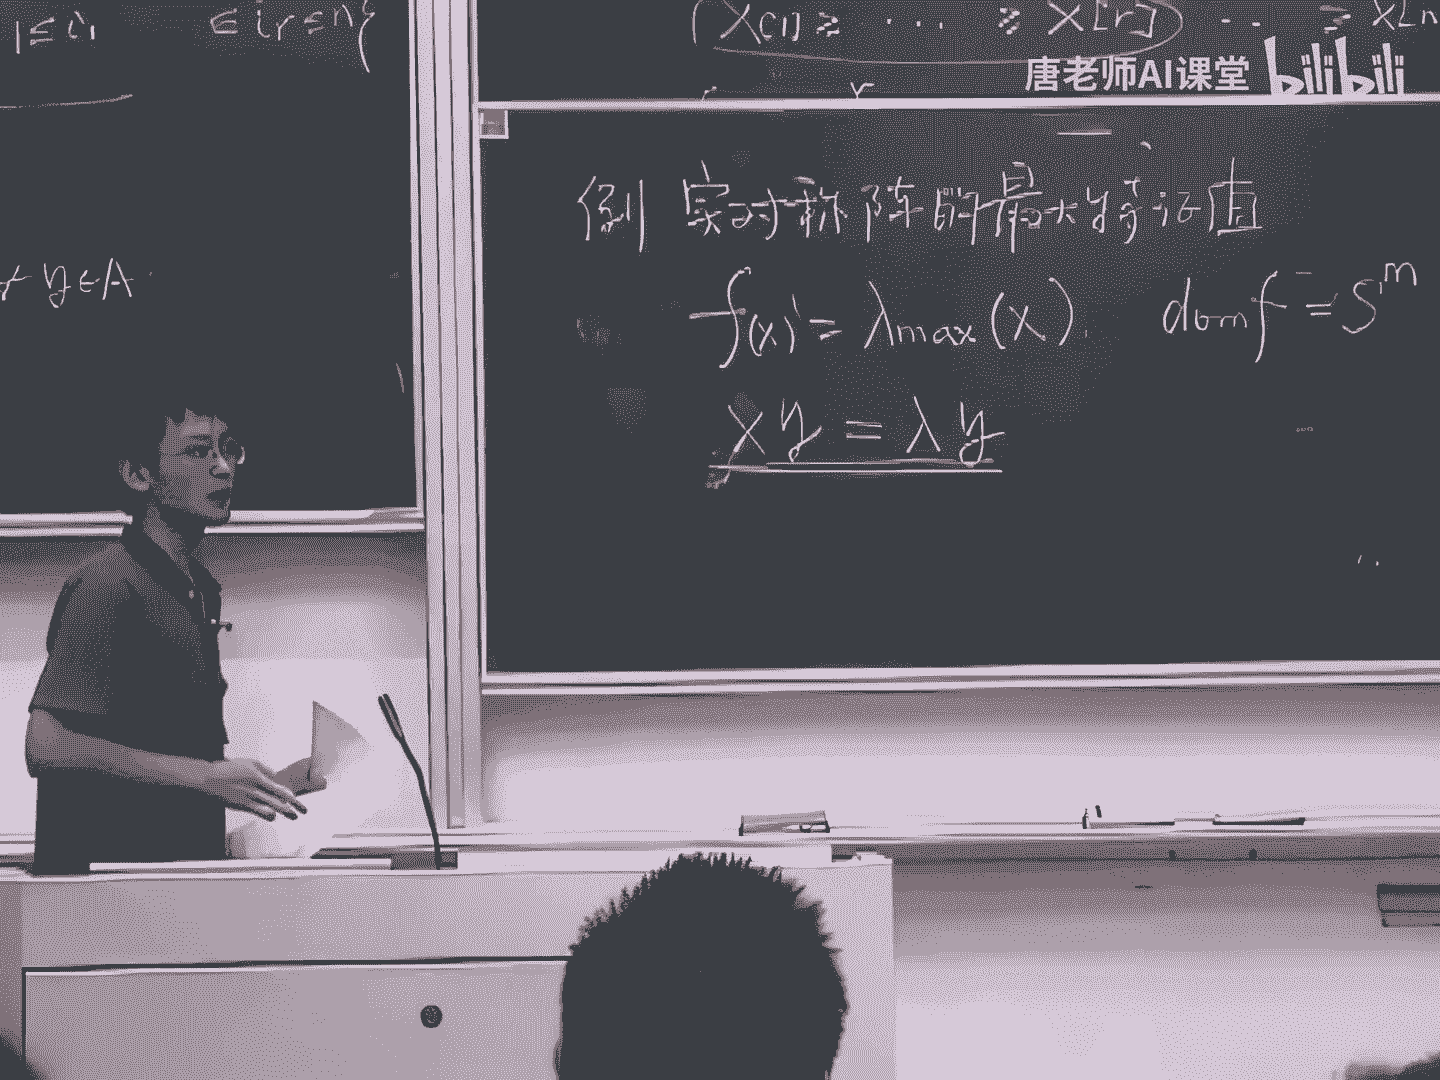 1≤i₁ ≤ir≤n}
y∈A
(X[1] ≥ ... ≥ X[r] ... ≥ X[n
r
唐老师AI课堂 bilibili
例 实对称阵的最大特征值
f(x) = λmax(X). domf = S^m
Xy = λy